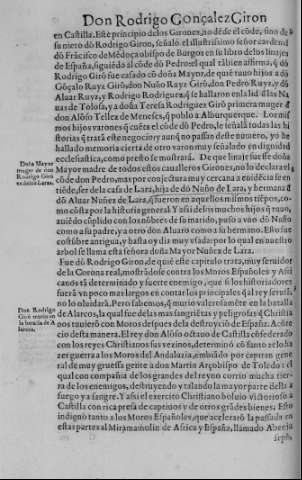 Don Rodrigo Gonçalez Giron
en Castilla. Este principio de los Girones, no dēde el cōde, sino de
su nieto dō Rodrigo Giron, señaló el illustrissimo señor cardenal
dō Frācisco de Mēdoça obispo de Burgos en su libro de los linajes
de España, siguiēdo al cōde dō Pedro, el qual tābien affirma, q̄ dō
Rodrigo Girō fue casado cō doña Mayor, de quié tauo hijos a dō
Gōçalo Ruyz Girō, don Nuño Ruyz Girō, don Pedro Ruyz, y dō
Aluar Ruyz, y Rodrigo Rodriguez, q̄ se hallarō en la batalla d̄ las Na
uas de Tolosa, y a doña Teresa Rodriguez Girō primera muger d̄
don Alōso Tellez de Meneses, q̄ poblo a Alburquerque. Los mis
mos hijos varones q̄ cuēta el cōde dō Pedro, le señalā todas las hi
storias q̄ tratā este negocio, y aunq̄ no passan deste numero, yo he
hallado memoria cierta de otro varon muy señalado en dignidad
ecclesiastica, como presto se mostrarà. De que linaje fuesse doña
Mayor madre de todos estos caualleros Girones, no lo declara el
cōde don Pedro, mas por conjectura muy cercana a euidēcia se en
tiēde, ser de la casa de Lara, hija de dō Nuño de Lara, y hermana d̄
dō Aluar Nuñez de Lara, q̄ fueron en aquellos mismos tiēpos, co-
mo cōsta por la historia general. Y assi destos muchos hijos q̄ tauo,
auiēdo cūplido con los nōbres de su marido, puso a vno dō Nuño
como a su padre, y a otro don Aluaro como a su hermano. Esto fue
costūbre antigua, y basta oy dia muy vsada: por lo qual en nuestro
arbol se llama esta señora doña Mayor Nuñez de Lara.
Doña Mayor
muger de don
Rodrigo Girō
Fue dō Rodrigo Giron, de quié este capitulo trata, muy seruidor
de la Corona real, mostrādose contra los Moros Españoles y Afri
canos tā determinado y fuerte enemigo, que si los historiadores
fuerā vn poco mas largos en contar los principales q̄ al rey seruiā,
no lo oluidarā. Pero sabemos, q̄ murio valerosamēte en la batalla
de Alarcos, la qual fue de las mas sangriētas y peligrosas q̄ Christia
nos tauieron con Moros despues de la destruyciō de España. Acae
cio desta manera. El rey don Alōso octauo de Castilla cōfederado
con los reyes Christianos sus vezinos, determinò cō santo zelo ha
zer guerra a los Moros del Andaluzia, embiādo por capitan gene
ral de muy gruessa gente a don Martin Arçobispo de Toledo: el
qual con compañia de los grandes del reyno corrio mucha tier-
ra de los enemigos, destruyendo y talando la mayor parte della a
fuego y a sangre. Y assi el exercito Christiano boluio victorioso a
Castilla con rica presa de captiuos y de otros grādes bienes. Esto
indignò tanto a los Moros Españoles, que acelerarō la passada en
estas partes al Miramamolin de Africa y España, llamado Abenju
Don Rodrigo
Girō murio en
la batalla de A
larcos.
seph,